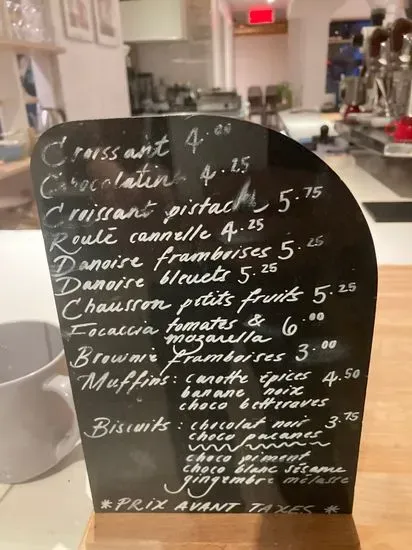 Croissant 4.00
Chocolatine 4.25
Croissant pistache 5.75
Roulé cannelle 4.25
Danoise framboises 5.25
Danoise bleuets 5.25
Chausson petits fruits 5.25
Focaccia tomates & 6.00
mozarella
Brownie framboises 3.00
Muffins: carotte épices 4.50
banane noix
choco betteraves
Biscuits: chocolat noir 3.75
choco pacanes
choco piment
choco blanc sésame
gingembre mélasse
*PRIX AVANT TAXES*